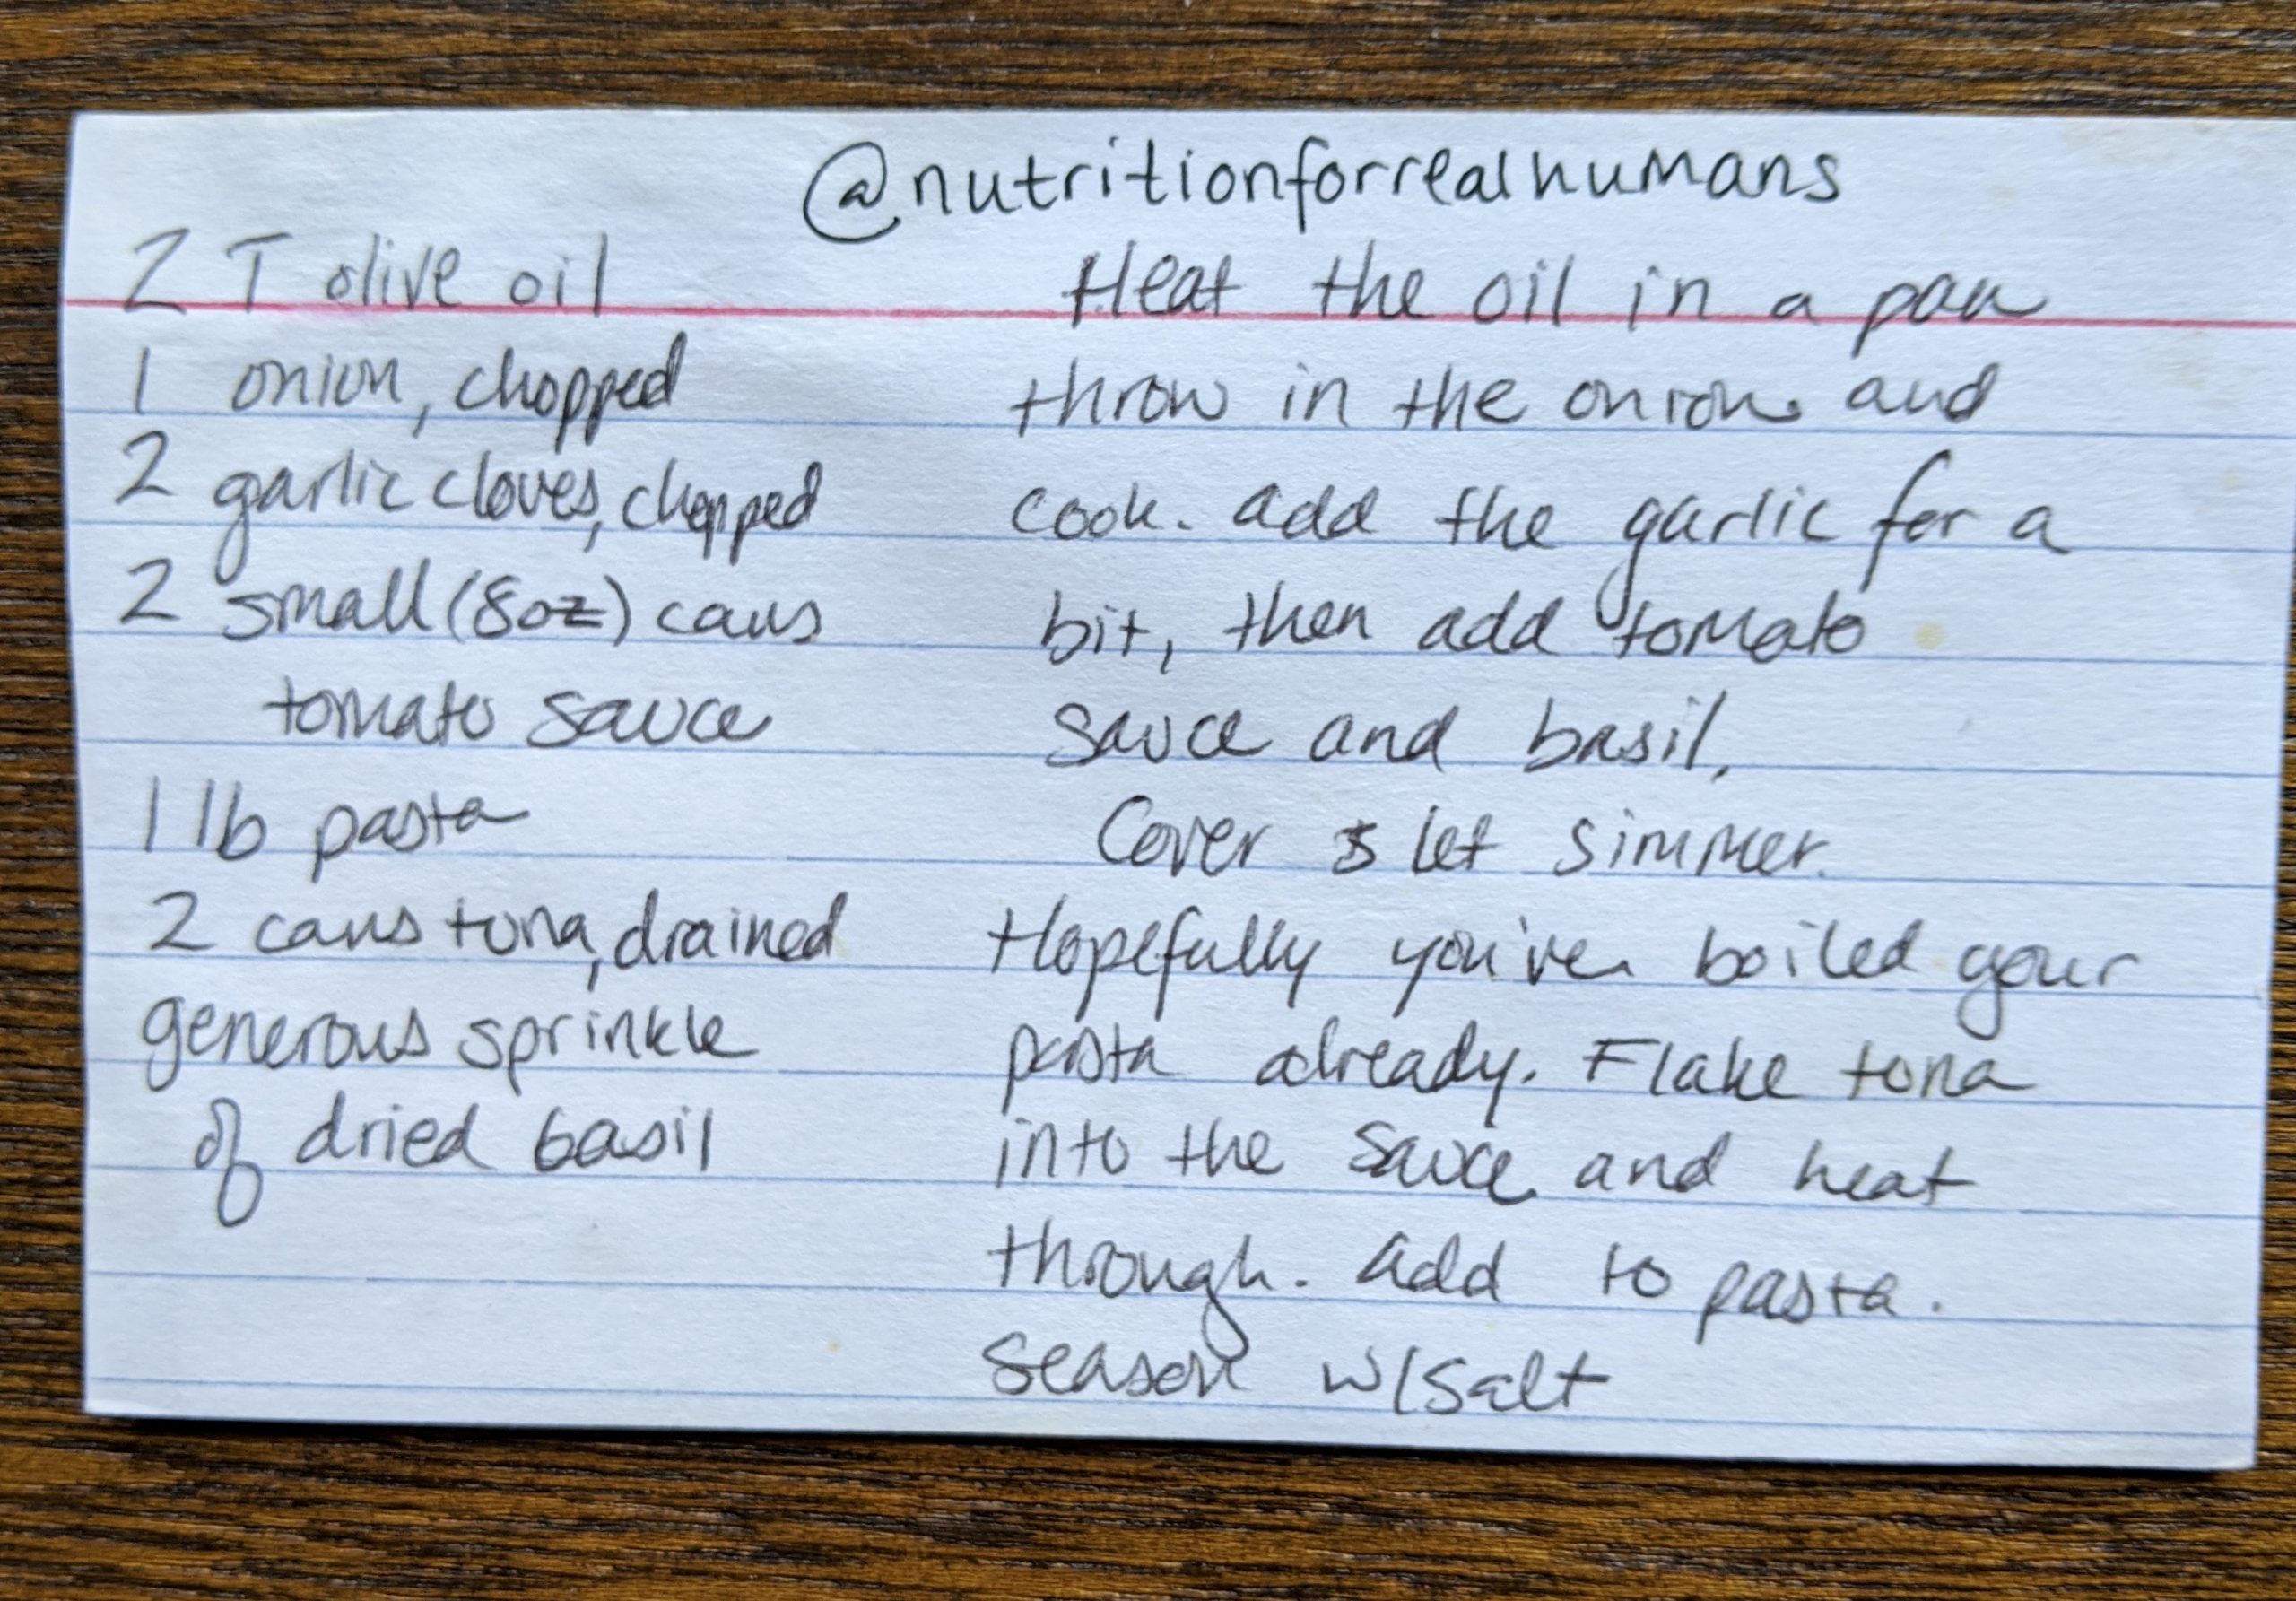 @nutritionforrealhumans
2 T olive oil
1 onion, chopped
2 garlic cloves, chopped
2 small (8oz) cans
tomato sauce
1 lb pasta
2 cans tuna, drained
generous sprinkle
of dried basil
Heat the oil in a pan
throw in the onion and
cook. add the garlic for a
bit, then add tomato
sauce and basil.
Cover & let simmer.
Hopefully you've boiled your
pasta already. Flake tuna
into the sauce and heat
through. add to pasta.
season w/salt